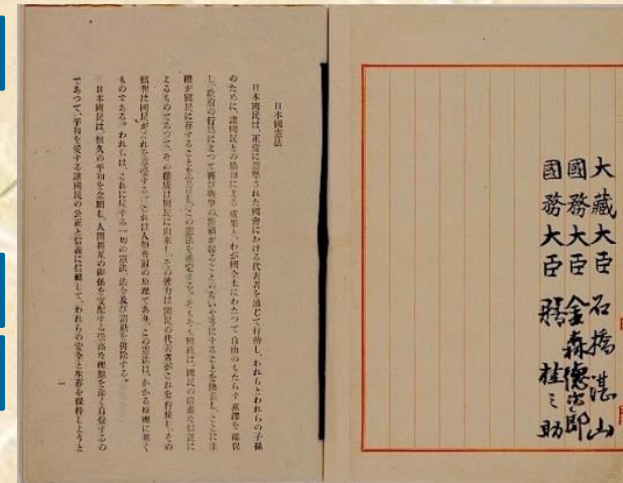 大藏大臣 石橋湛山
國務大臣 金森德次郎
國務大臣 膳桂之助
日本國憲法
日本國民は、正當に選擧された國會における代表者を通じて行動し、われらとわれらの子孫
のために、諸國民との協和による成果と、わが國全土にわたつて自由のもたらす惠澤を確保
し、政府の行爲によつて再び戰爭の慘禍が起ることのないやうにすることを決意し、ここに主
權が國民に存することを宣言し、この憲法を確定する。そもそも國政は、國民の嚴肅な信託に
よるものであつて、その權威は國民に由來し、その權力は國民の代表者がこれを行使し、その
福利は國民がこれを享受する。これは人類普遍の原理であり、この憲法は、かかる原理に基く
ものである。われらは、これに反する一切の憲法、法令及び詔勅を排除する。
日本國民は、恆久の平和を念願し、人間相互の關係を支配する崇高な理想を深く自覺するの
であつて、平和を愛する諸國民の公正と信義に信頼して、われらの安全と生存を保持しようと
一